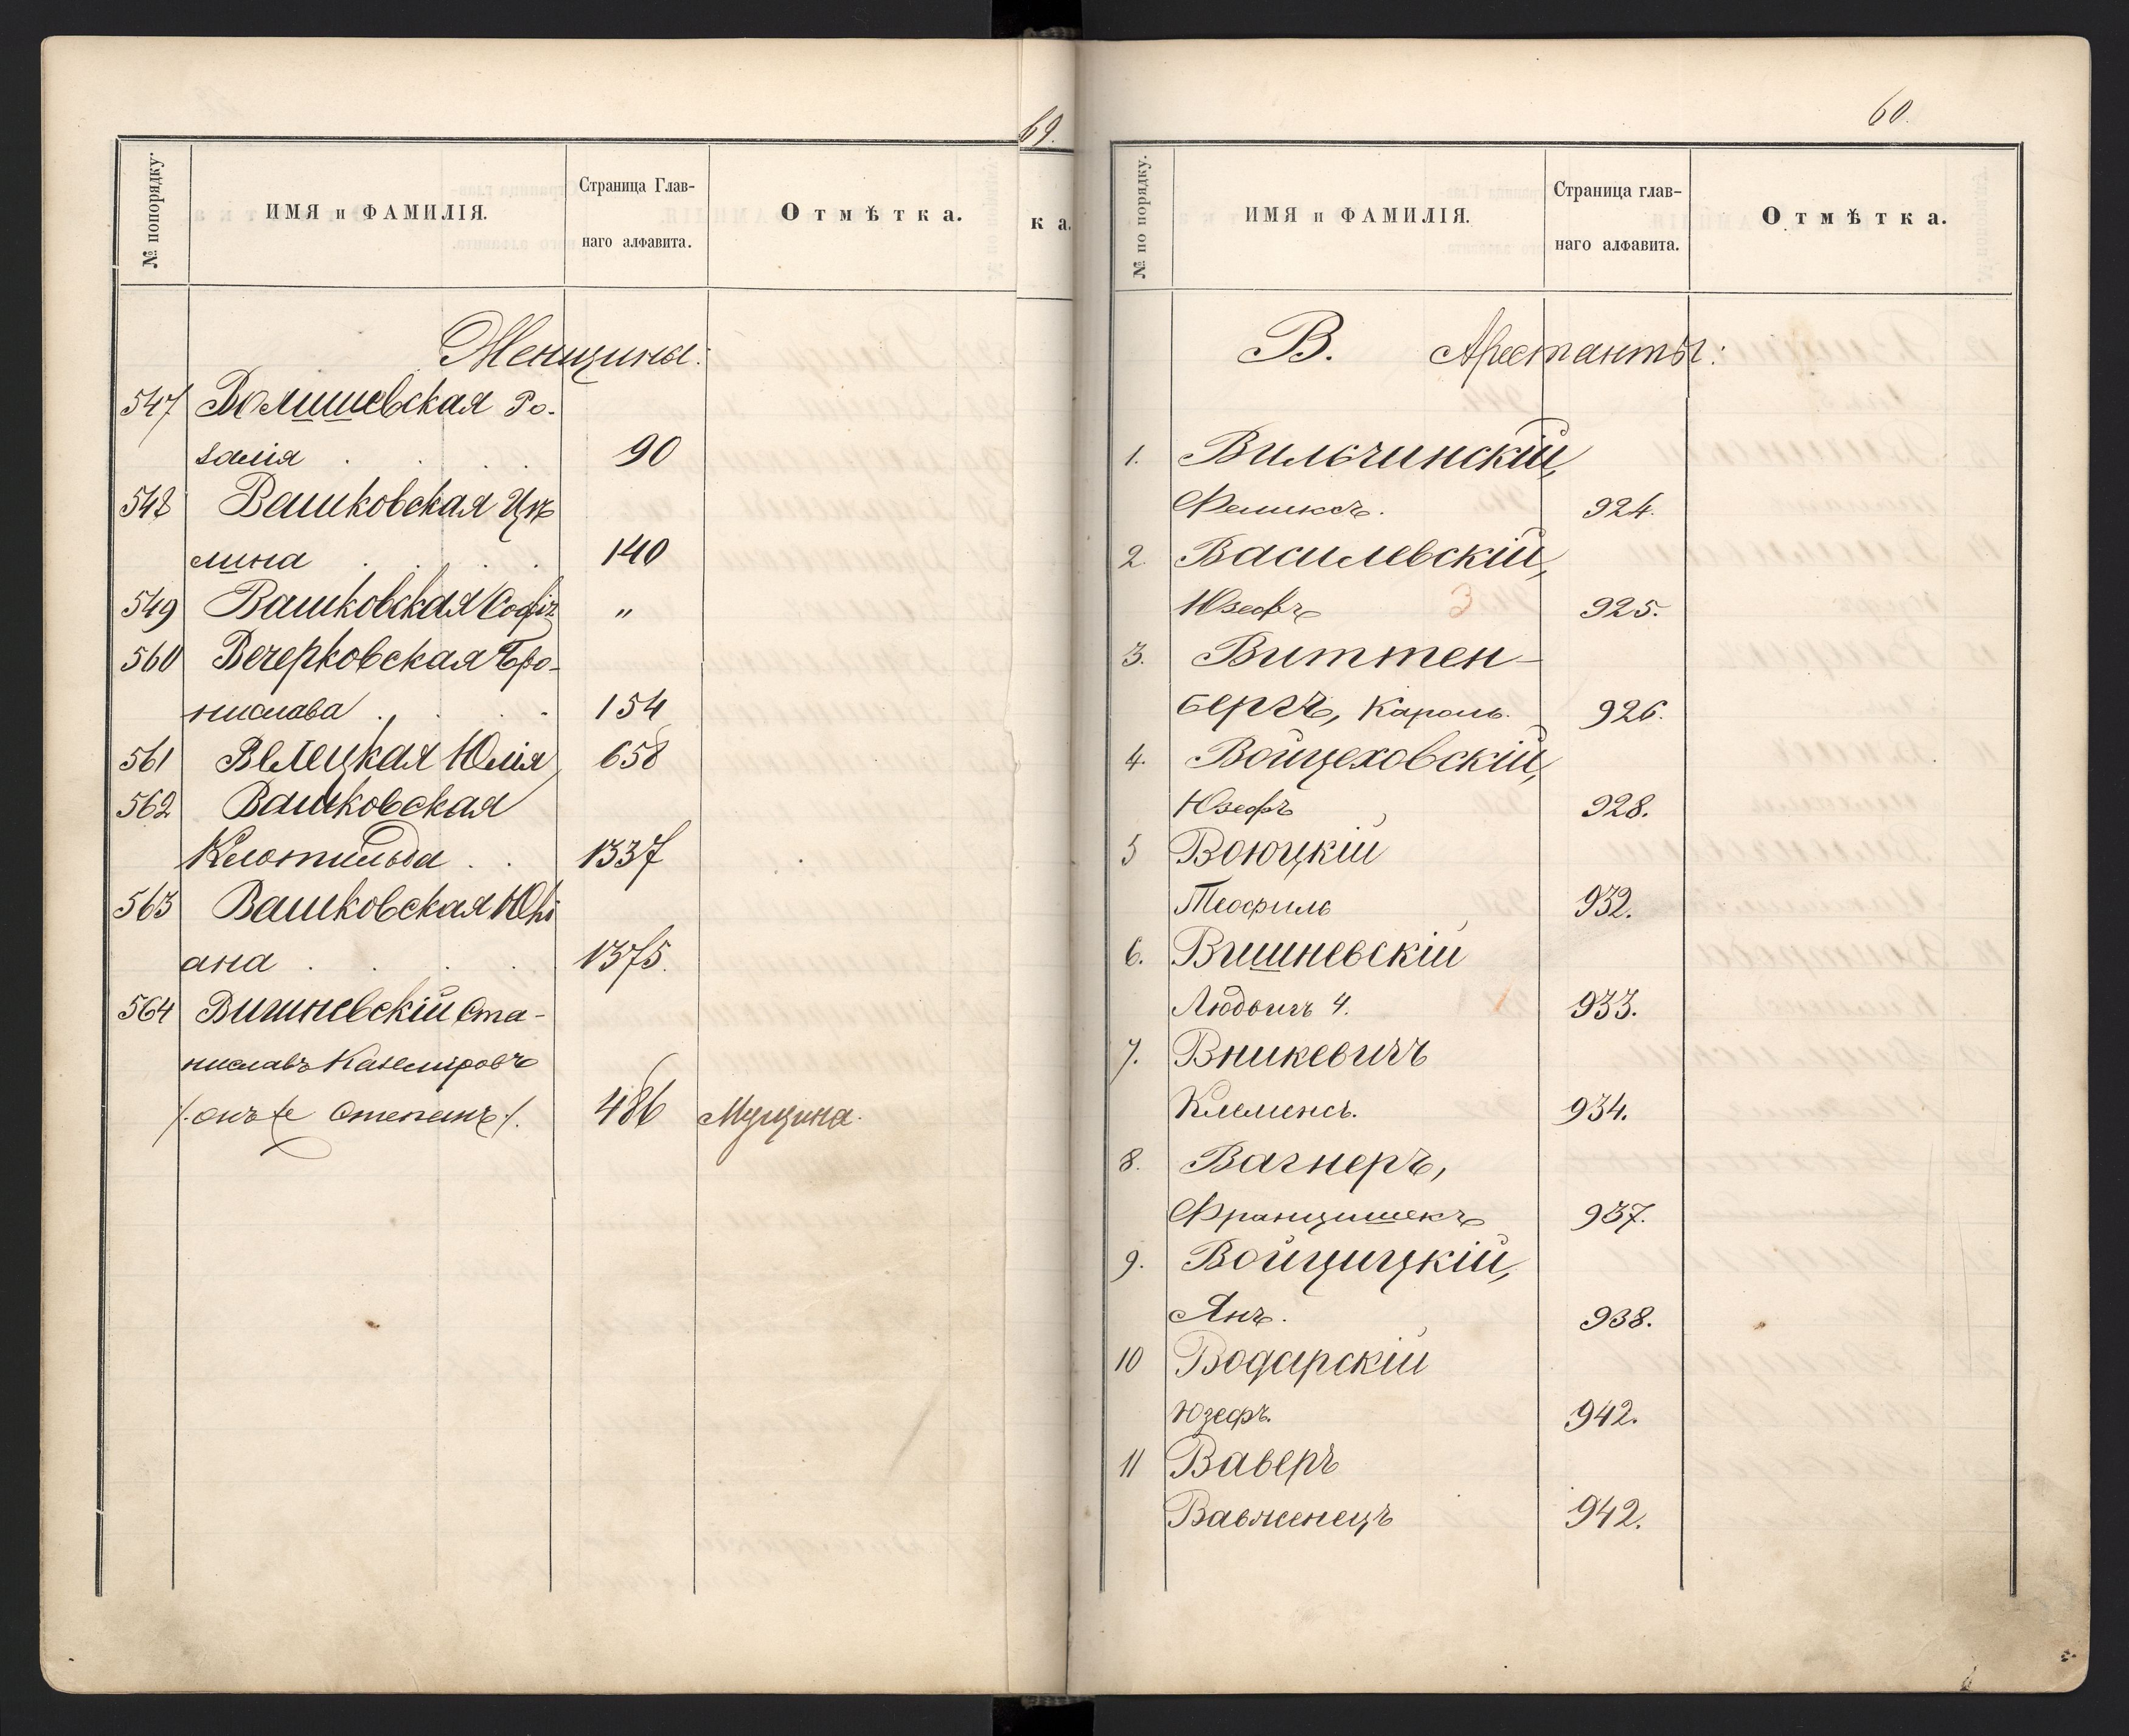 69.
№ попорядку.
ИМЯ и ФАМИЛІЯ.
Страница Глав-
наго алфавита.
Отмѣтка.
ка.
Женщины:
547 Волишевская Ро-
залія 90
548 Вашковская Це
лина 140
549 Вашковская Софія "
560 Вечерковская Бро-
нислава 154
561 Велецкая Юлія 658
562 Вашковская
Клотильда 1337
563 Вашковская Юлі
ана 1375.
564 Вишневскій Ста-
ниславъ Каземіровъ
/.онъ же Степанъ./. 486 Мущина.
60.
№ по порядку.
ИМЯ и ФАМИЛІЯ.
Страница глав-
наго алфавита.
Отмѣтка.
В. Арестанты:
1. Вильчинскій,
Феликсъ. 924.
2. Василевскій,
Юзефъ 3 925.
3. Виттен-
бергъ, Кароль. 926.
4. Войцеховскій,
Юзефъ 928.
5 Воюцкій
Теофиль 932.
6. Вишневскій
Людвигъ 4. 933.
7. Вникевичъ
Клеменсъ. 934.
8. Вагнеръ,
Францишекъ 937.
9. Войцицкій,
Янъ. 938.
10 Водарскій
Юзефъ. 942.
11 Ваверъ
Вавженецъ 942.